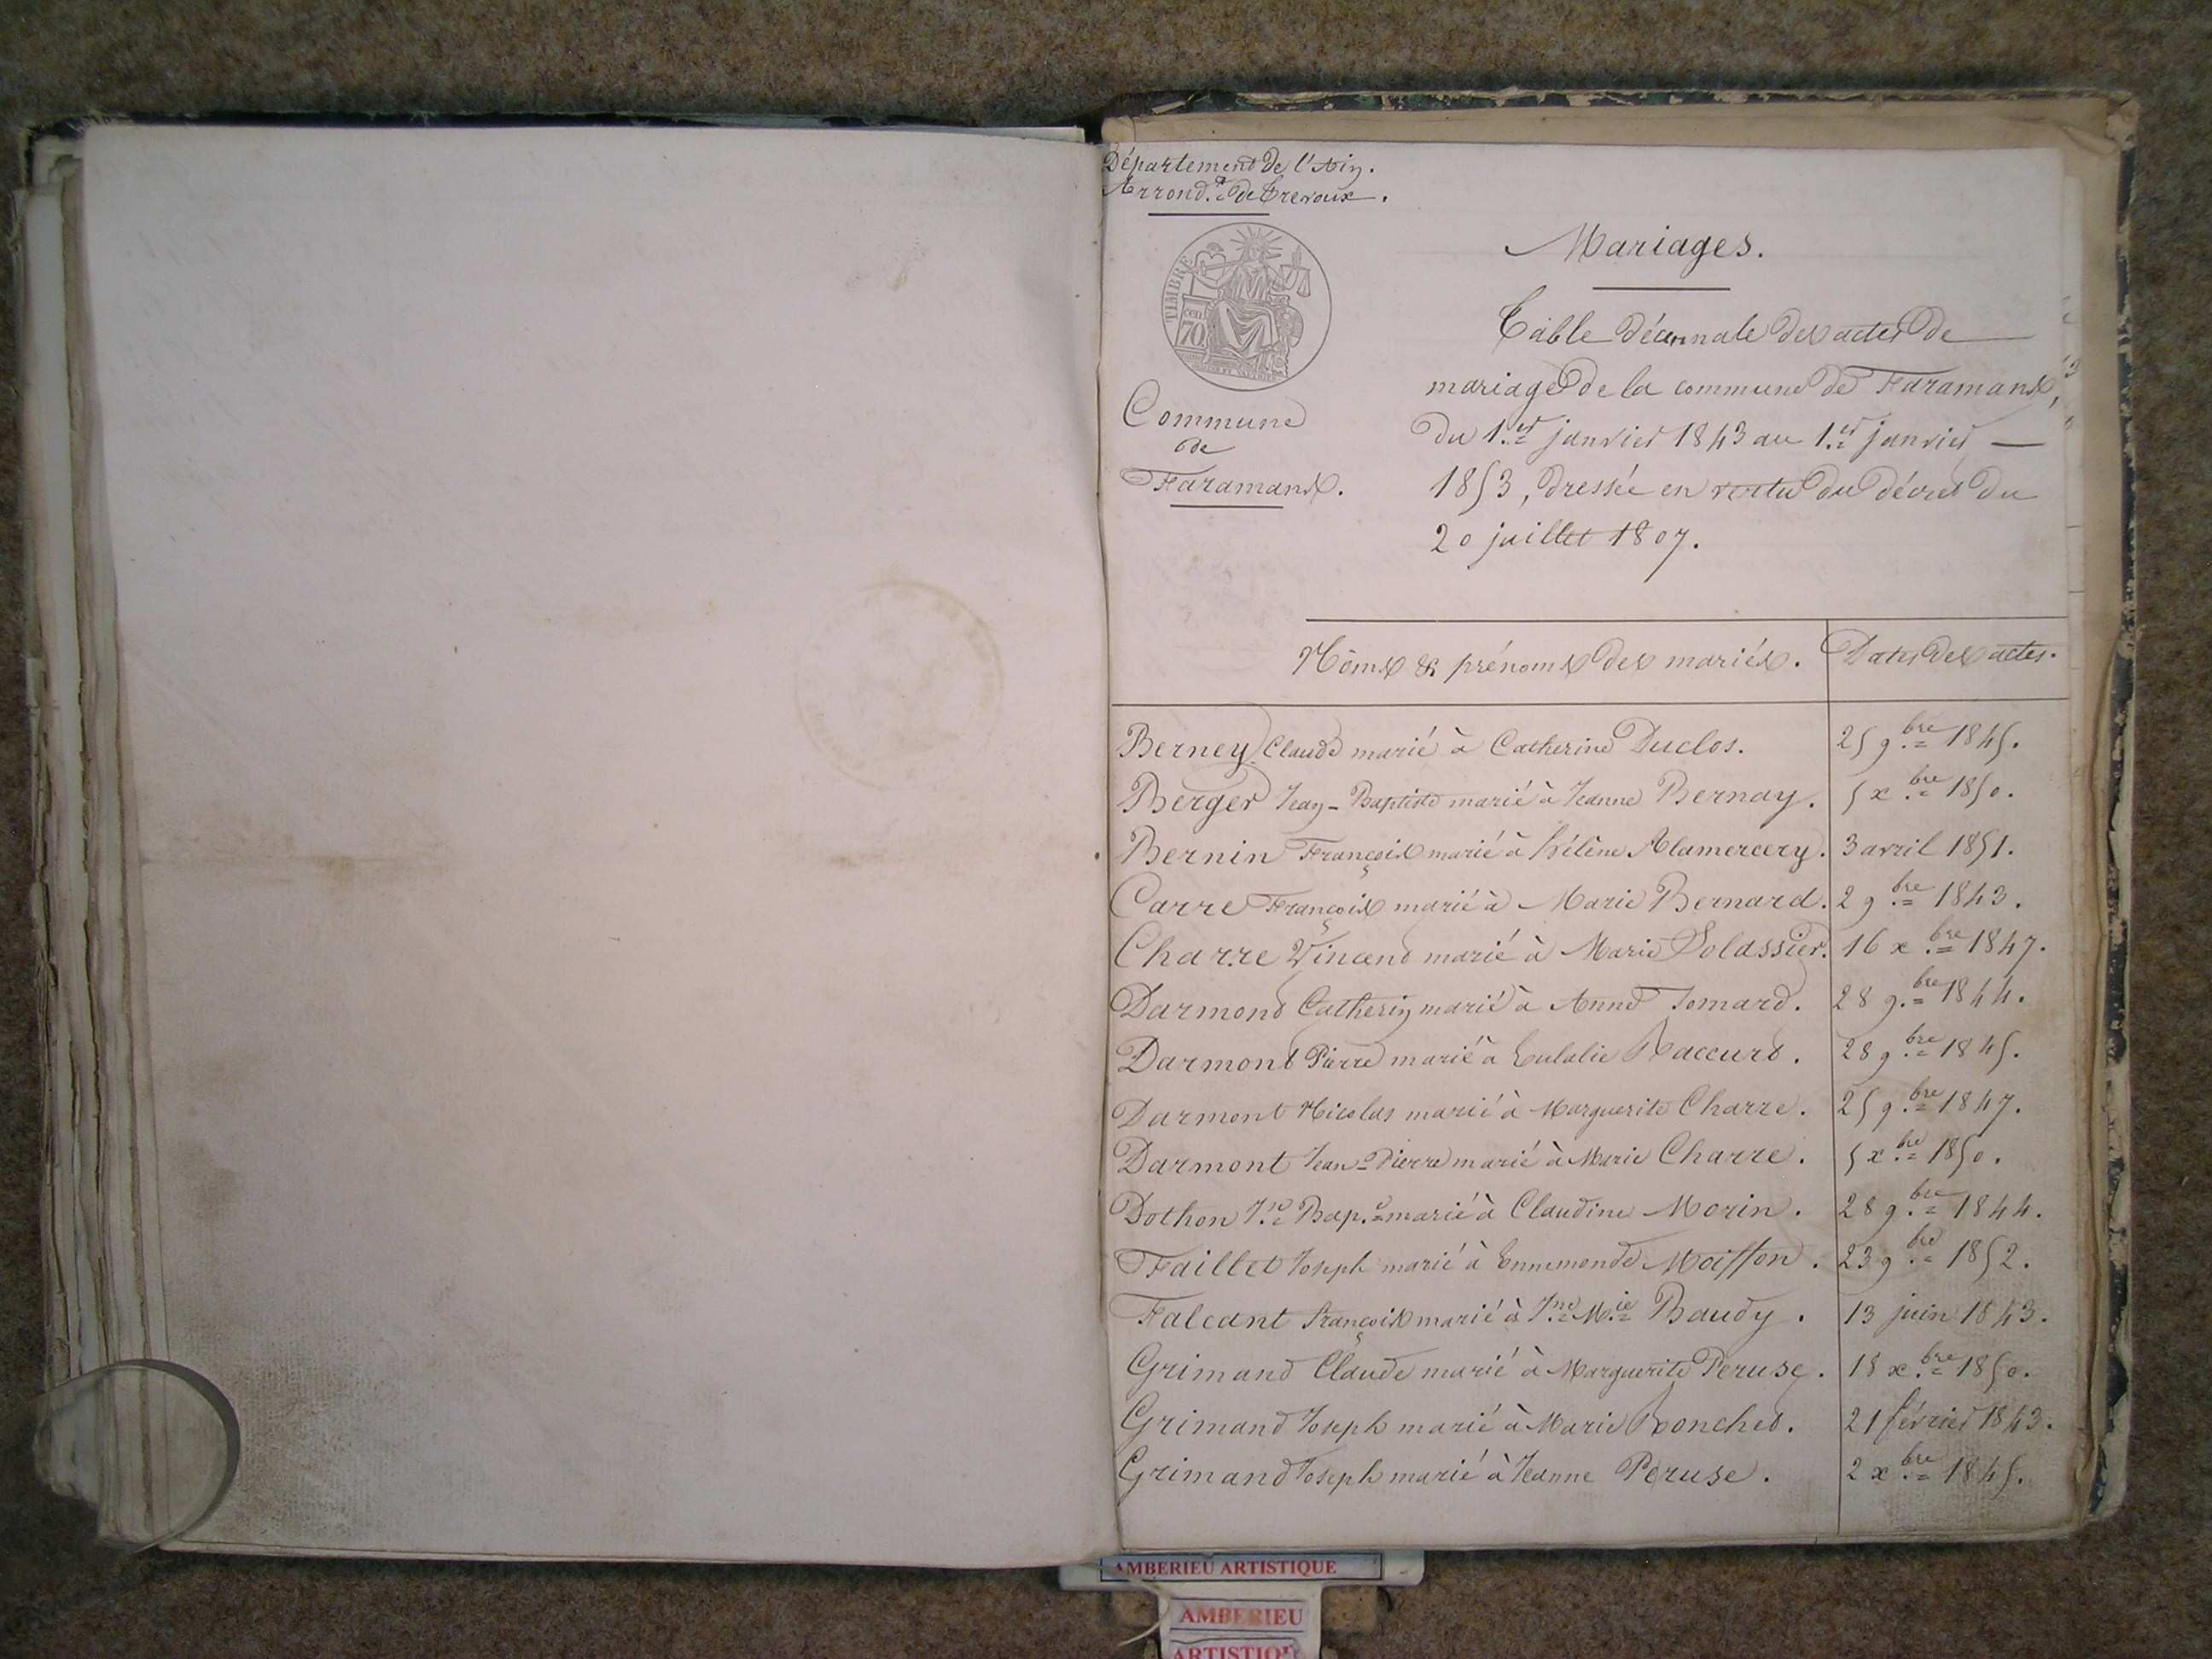 Département de l'Ain.
Arrond.t de Trevoux.
TIMBRE
cen
70
Commune
de
Faramans.
Mariages.
Table décennale des actes de
mariage de la commune de Faramans,
du 1.er janvier 1843 au 1.er janvier
1853, dressée en vertu du décret du
20 juillet 1807.
Noms & prénoms des mariés. Dates des actes.
Berney Claude marié à Catherine Duclos. 25 9.bre 1845.
Berger Jean-Baptiste marié à Jeanne Bernay. 5 x.bre 1850.
Bernin François marié à Hélène Alamercery. 3 avril 1851.
Carre François marié à Marie Bernard. 2 9.bre 1843.
Charre Vincent marié à Marie Solassier. 16 x.bre 1847.
Darmond Catherin marié à Anne Tomard. 28 9.bre 1844.
Darmont Pierre marié à Eulalie Raccurt. 28 9.bre 1845.
Darmont Nicolas marié à Marguerite Charre. 25 9.bre 1847.
Darmont Jean-Pierre marié à Marie Charre. 5 x.bre 1850.
Dothon Bap.e marié à Claudine Morin. 28 9.bre 1844.
Faillet Joseph marié à Ennemonde Moisson. 23 9.bre 1852.
Falcant François marié à J.ne M.ie Baudy. 13 juin 1843.
Grimand Claude marié à Marguerite Peruse. 18 x.bre 1850.
Grimand Joseph marié à Marie Ronchet. 21 février 1843.
Grimand Joseph marié à Jeanne Peruse. 2 x.bre 1845.
AMBERIEU ARTISTIQUE
AMBERIEU
ARTISTIQUE